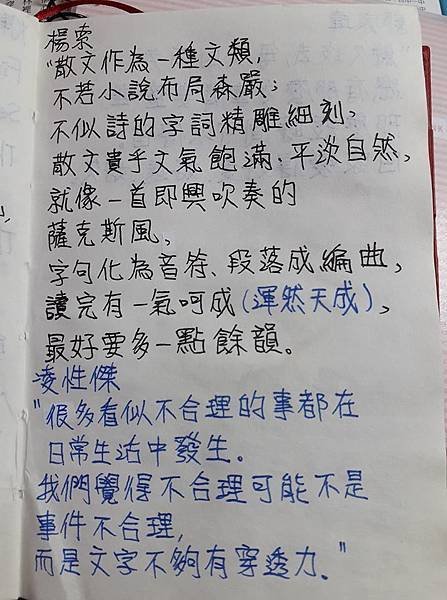 楊索
"散文作為一種文類,
不若小說布局森嚴;
不似詩的字詞精雕細刻,
散文貴乎文氣飽滿、平淡自然,
就像一首即興吹奏的
薩克斯風,
字句化為音符、段落成編曲,
讀完有一氣呵成(渾然天成)、
最好要多一點餘韻。
凌性傑
"很多看似不合理的事都在
日常生活中發生。
我們覺得不合理可能不是
事件不合理,
而是文字不夠有穿透力。"